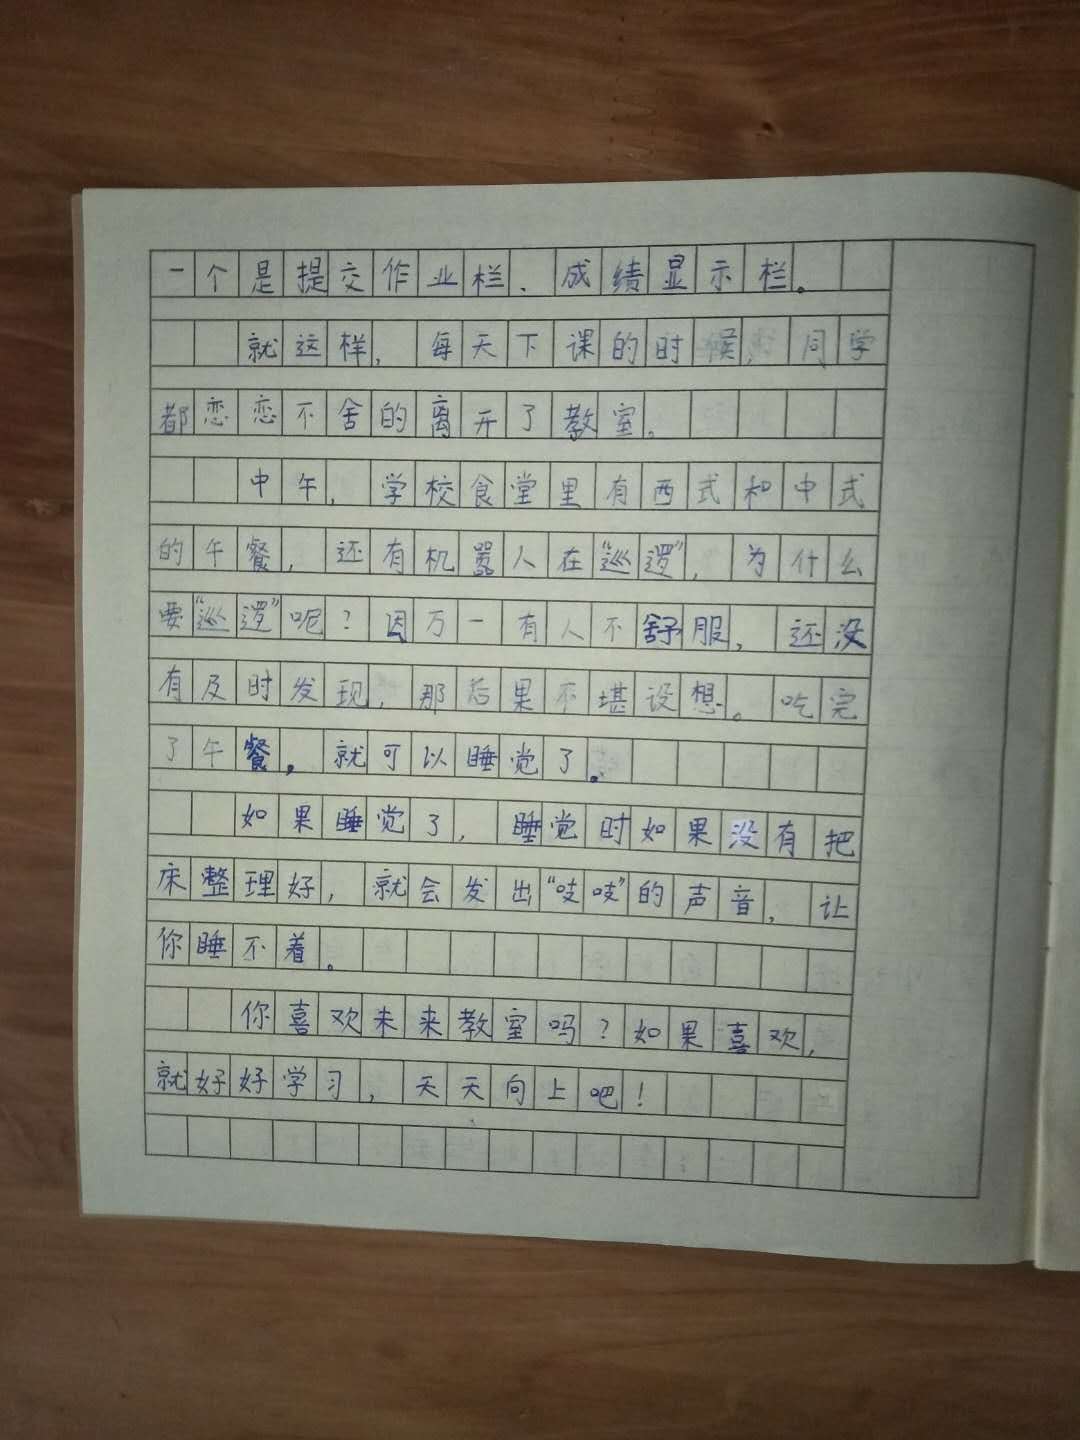 一个是提交作业栏、成绩显示栏。
就这样，每天下课的时候，同学
都恋恋不舍的离开了教室。
中午，学校食堂里有西式和中式
的午餐，还有机器人在“巡逻”，为什么
要“巡逻”呢？因万一有人不舒服，还没
有及时发现，那后果不堪设想。吃完
了午餐，就可以睡觉了。
如果睡觉了，睡觉时如果没有把
床整理好，就会发出“吱吱”的声音，让
你睡不着。
你喜欢未来教室吗？如果喜欢，
就好好学习，天天向上吧！